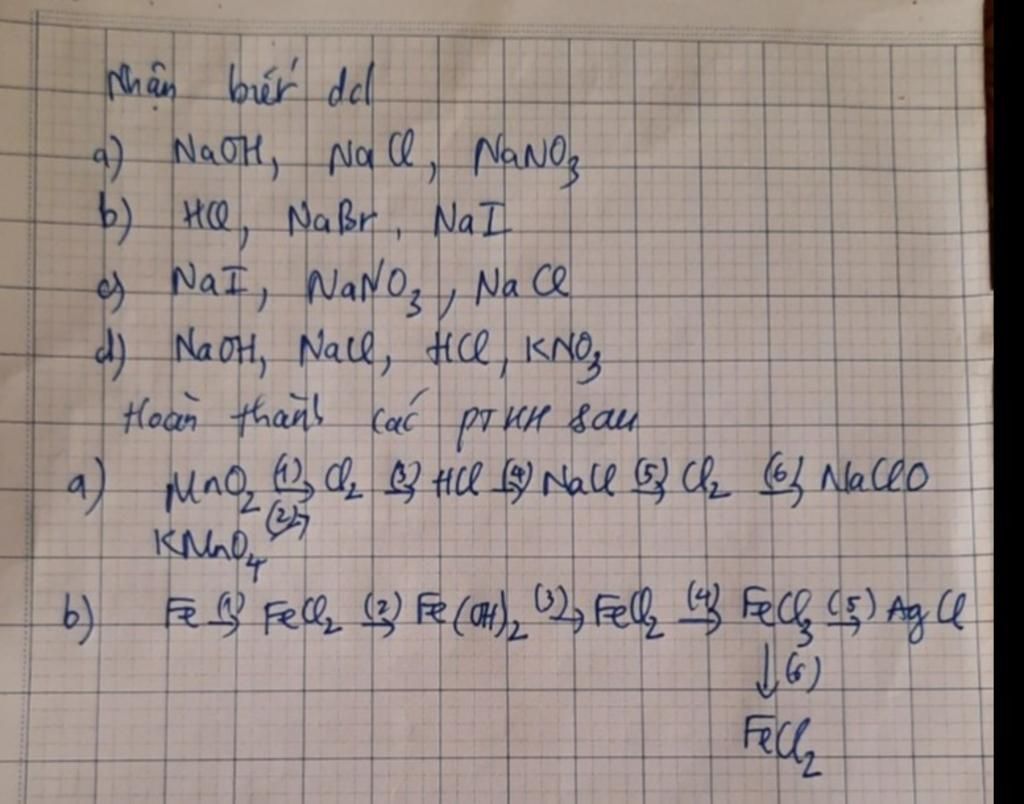 Nhận biết dd
a) NaOH, NaCl, NaNO3
b) HCl, NaBr, NaI
c) NaI, NaNO3, NaCl
d) NaOH, NaCl, HCl, KNO3
Hoàn thành các PTHH sau
a) MnO2 (1)→ Cl2 (3)→ HCl (4)→ NaCl (5)→ Cl2 (6)→ NaClO
KMnO4 (2)→
b) Fe (1)→ FeCl2 (2)→ Fe(OH)2 (3)→ FeCl2 (4)→ FeCl3 (5)→ AgCl
↓(6)
FeCl2